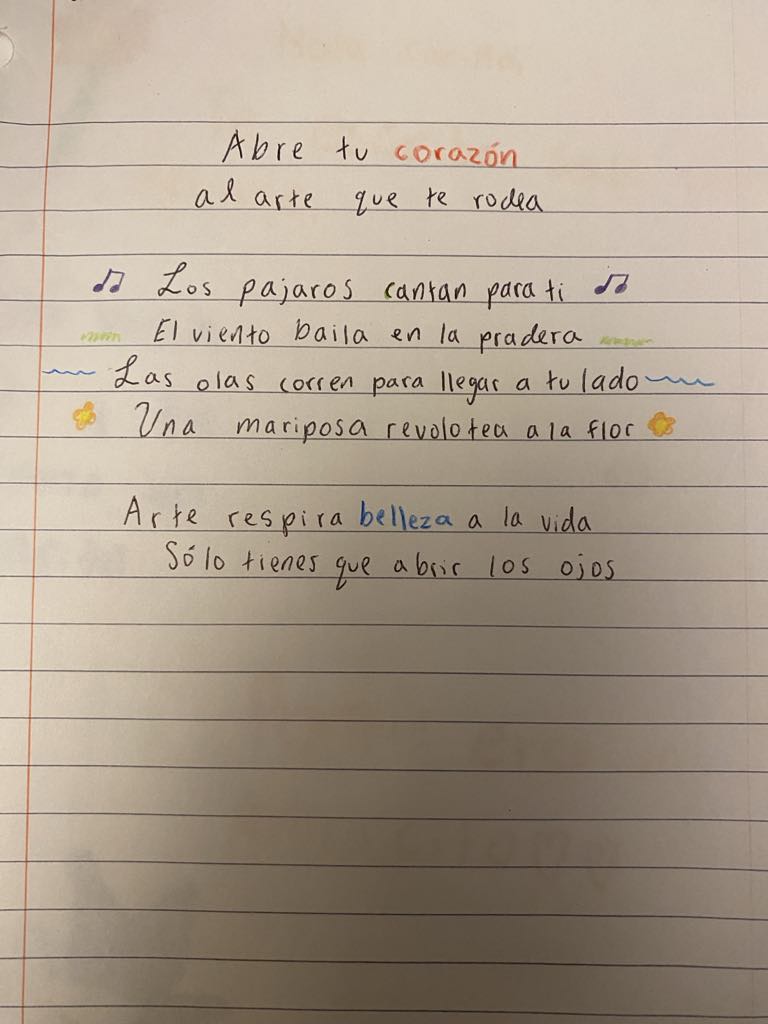 Abre tu corazón
al arte que te rodea
Los pajaros cantan para ti
El viento baila en la pradera
Las olas corren para llegar a tu lado
Una mariposa revolotea a la flor
Arte respira belleza a la vida
Sólo tienes que abrir los ojos